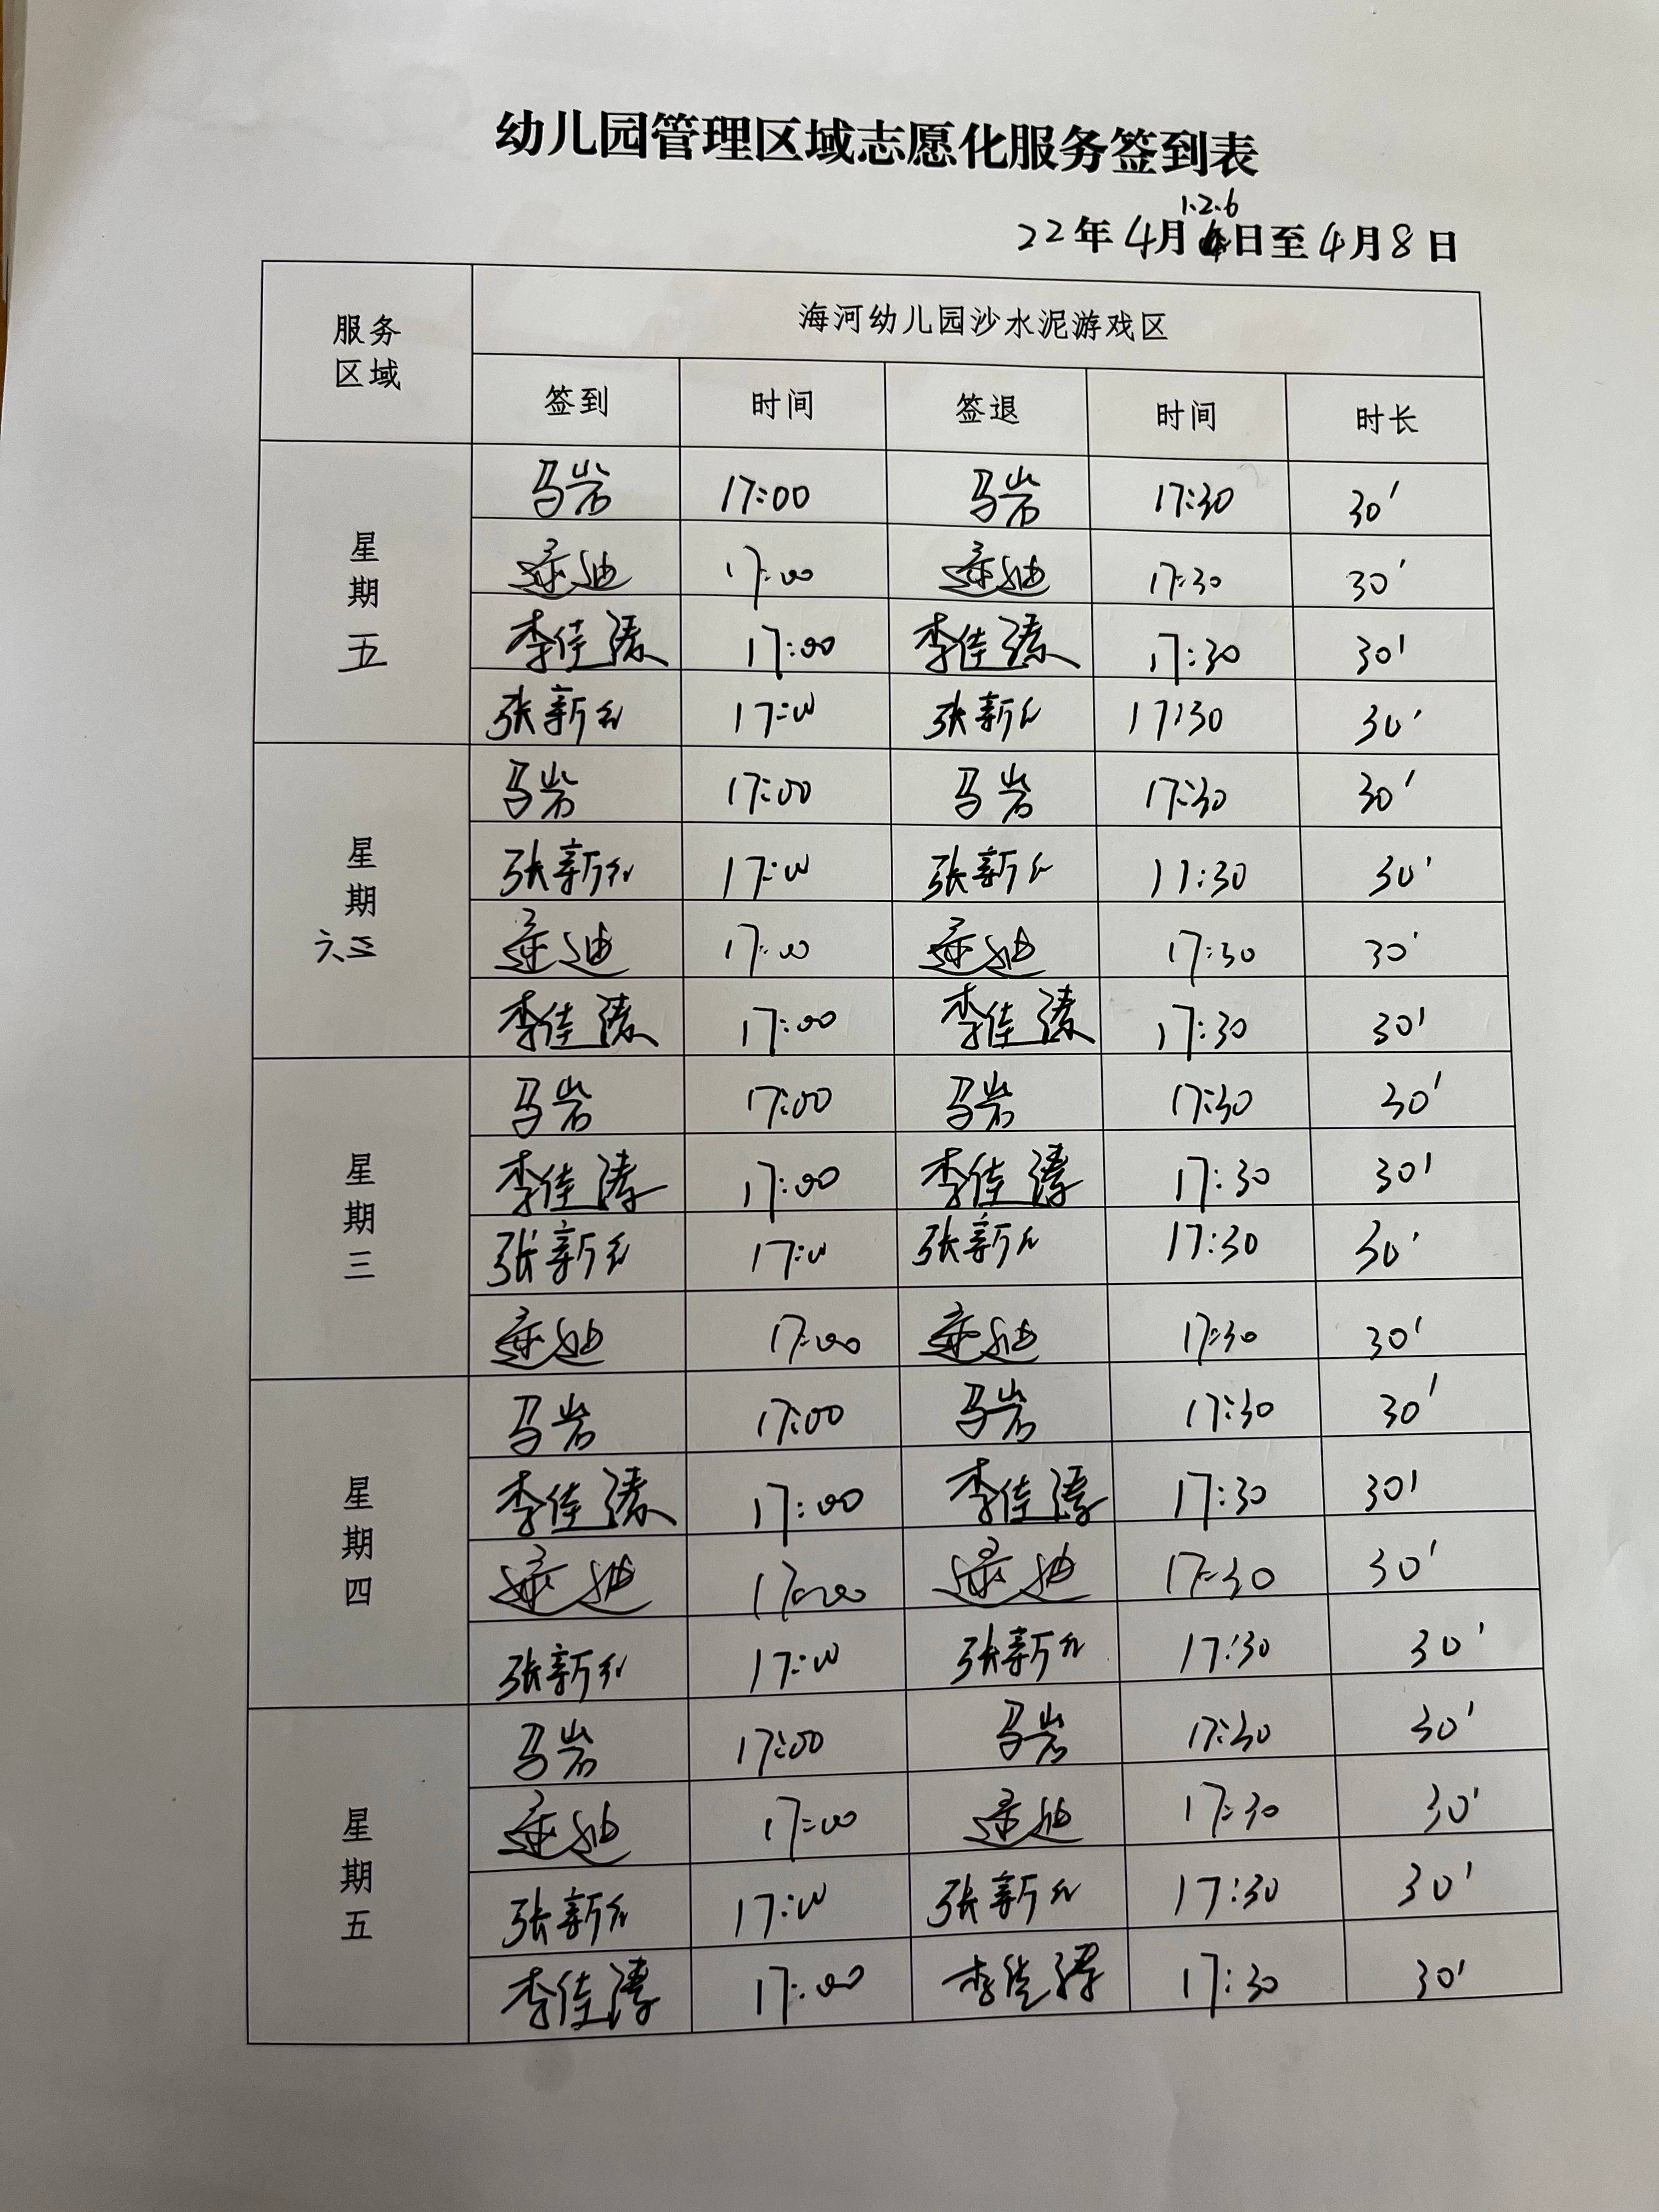 幼儿园管理区域志愿化服务签到表
1.2.6
22年4月日至4月8日
服务区域 海河幼儿园沙水泥游戏区
签到 时间 签退 时间 时长
星期五
马岩 17:00 马岩 17:30 30'
迪 17:00 迪 17:30 30'
李佳 17:00 李佳 17:30 30'
张新 17:00 张新 17:30 30'
星期六
马岩 17:00 马岩 17:30 30'
张新 17:00 张新 17:30 30'
迪 17:00 迪 17:30 30'
李佳 17:00 李佳 17:30 30'
星期三
马岩 17:00 马岩 17:30 30'
李佳 17:00 李佳 17:30 30'
张新 17:00 张新 17:30 30'
迪 17:00 迪 17:30 30'
星期四
马岩 17:00 马岩 17:30 30'
李佳 17:00 李佳 17:30 30'
迪 17:00 迪 17:30 30'
张新 17:00 张新 17:30 30'
星期五
马岩 17:00 马岩 17:30 30'
迪 17:00 迪 17:30 30'
张新 17:00 张新 17:30 30'
李佳 17:00 李佳 17:30 30'